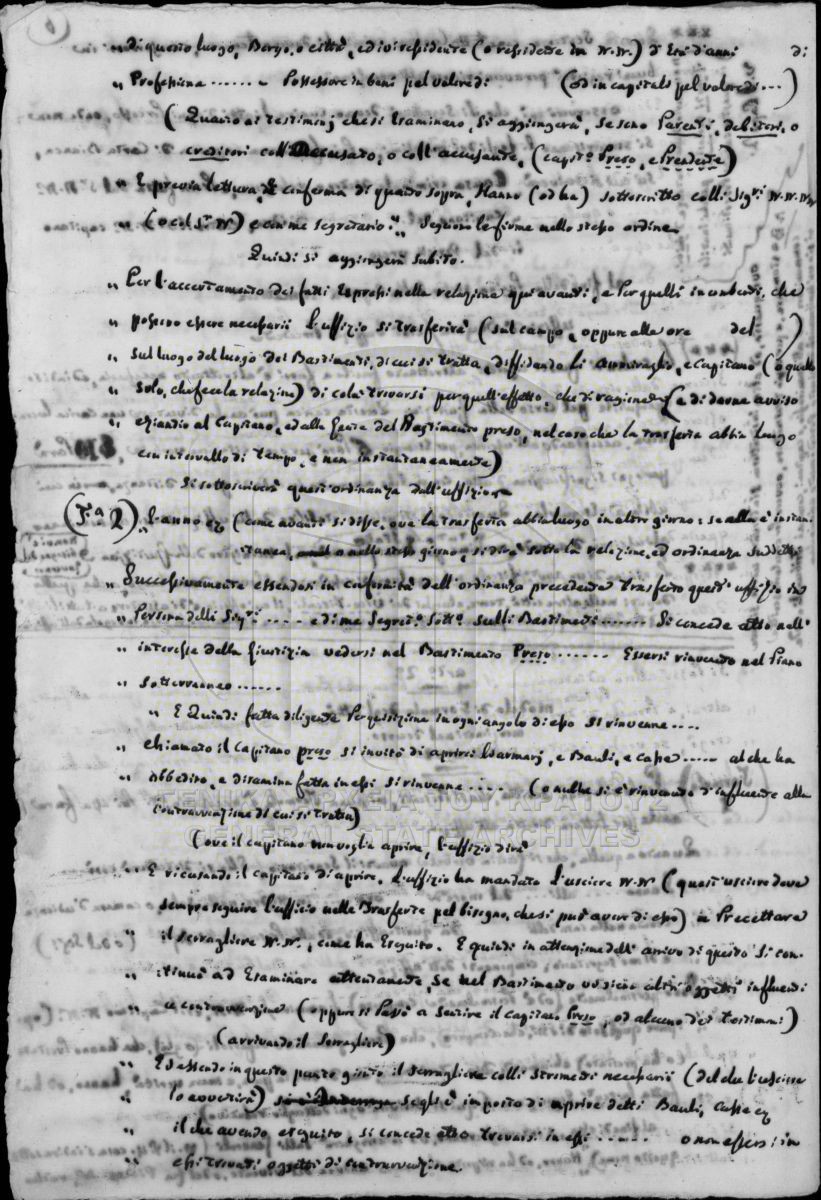 di questo luogo, Borgo, o città, ed ivi residente (o residente in N.N.) d'Età d'anni di
" Professione ...... Possessore in beni pel valore di (od in capitali pel valore di ...)
( Quanto ai testimonj che si esaminano, si aggiungerà, se sono Parenti, debitori, o
creditori coll'accusato, o coll'accusante, (capit.o Preso, e Prendente)
" E previa lettura, e conferma di quanto sopra, Hanno (od ha) sottoscritto colli Sig.ri N.N.N.N.
" (o col S.r N) e con me segretario. " Seguono le firme nello stesso ordine
Quindi si aggiungerà subito.
" Per l'accertamento dei fatti Espressi nella relazione qui avanti, e Per quelli incombenti, che
" possono essere necessarii l'uffizio si trasferirà (sul campo, oppure alle ore del )
" sul luogo dei Bastimenti, di cui si tratta, diffidando li Ammiraglio, e Capitano (o quello
" solo, che fece la relazione) di colà trovarsi per quell'effetto, che di ragione (e di darne avviso
" eziandio al Capitano, ed alla Gente del Bastimento preso, nel caso che la trasferta abbia luogo
con intervallo di tempo, e non instantaneamente)
Si sottoscriverà quest'ordinanza dall'uffizio
(T.a 2) " L'anno (come avanti si disse, ove la trasferta abbia luogo in altro giorno: se alla è instan
tanea, o nello stesso giorno, si dirà sotto la relazione, ed ordinanza suddetti
" Successivamente essendosi in conformità dell'ordinanza precedente trasferto quest'uffizio in
" Persona delli Sig.ri .... e di me Segret.o Sott.o sulli Bastimenti ...... Si concede atto nell'
" interesse della Giustizia vedersi nel Bastimento Preso ...... Essersi rinvenuto nel Piano
" sotterraneo ......
" E Quindi fatta diligente Perquisizione in ogni angolo di esso si rinvenne ....
" chiamato il Capitano preso si invitò di aprirci li armarj, e Bauli, e casse ..... al che ha
" obbedito, e disamina fatta in essi si rinvenne .... (o nulla si è rinvenuto d'influente alla
Contravvenzione di cui si tratta)
ΓΕΝΙΚΑ ΑΡΧΕΙΑ ΤΟΥ ΚΡΑΤΟΥΣ
GENERAL STATE ARCHIVES
(ove il capitano non voglia aprire, l'uffizio dirà
E ricusando il capitano di aprire. L'uffizio ha mandato l'usciere N.N. (quest'usciere deve
sempre seguire l'ufficio nelle Trasferte pel bisogno, che si può aver di esso) a Precettare
" il serragliere N.N., come ha Eseguito. E quindi in attenzione dell'arrivo di questo si con-
" tinuò ad Esaminare attentamente, se nel Bastimento vi sieno altri oggetti influenti
" a contravvenzione (oppure si Passò a sentire il capitano Preso, od alcuno dei Testimoni)
(arrivando il Serragliere)
" Ed essendo in questo punto giunto il serragliere colli stromenti necessarii (del che l'usciere
" lo avvertirà) segli è imposto di aprire detti Bauli, Casse
" il che avendo eseguito, si concede atto trovarsi in essi ...... o non essersi in
" essi trovati oggetti di contravvenzione.